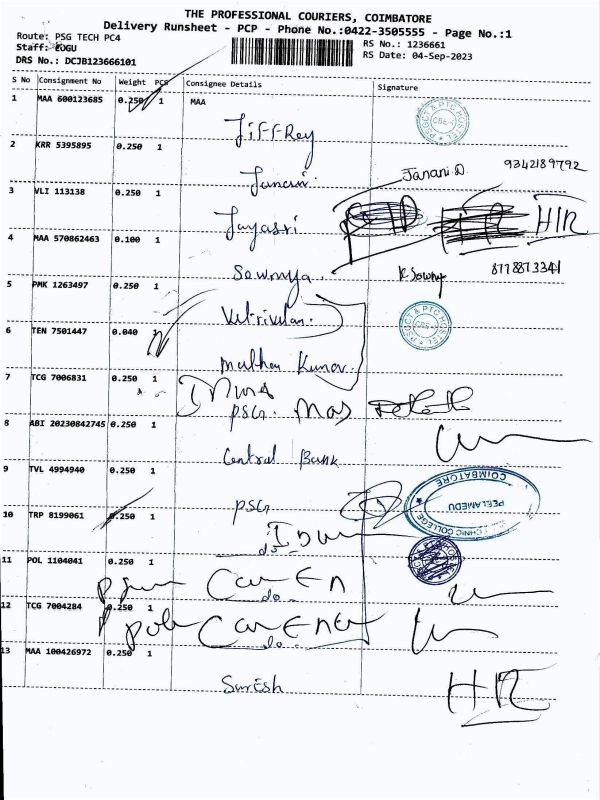 THE PROFESSIONAL COURIERS, COIMBATORE
Delivery Runsheet - PCP - Phone No.:0422-3505555 - Page No.:1
Route: PSG TECH PC4
RS No.: 1236661
Staff: LOGU
RS Date: 04-Sep-2023
DRS No.: DCJB123666101
S No Consignment No Weight PCS Consignee Details Signature
1 MAA 600123685 0.250 1 MAA
Jiffrey
2 KRR 5395895 0.250 1
Janani D 9342189792
3 VLI 113138 0.250 1
Jayasri HIR
4 MAA 570862463 0.100 1
Sowmya K Sowmy 8778873341
5 PMK 1263497 0.250 1
Vetrivelan
6 TEN 7501447 0.040 1
Kumar
7 TCG 7006831 0.250 1
PSG
8 ABI 20230842745 0.250 1
Central Bank
9 TVL 4994940 0.250 1
PSG
COIMBATORE
PEELAMEDU
10 TRP 8199061 0.250 1
do
11 POL 1104041 0.250 1
do
12 TCG 7004284 0.250 1
do
13 MAA 100426972 0.250 1
Suresh
HIR